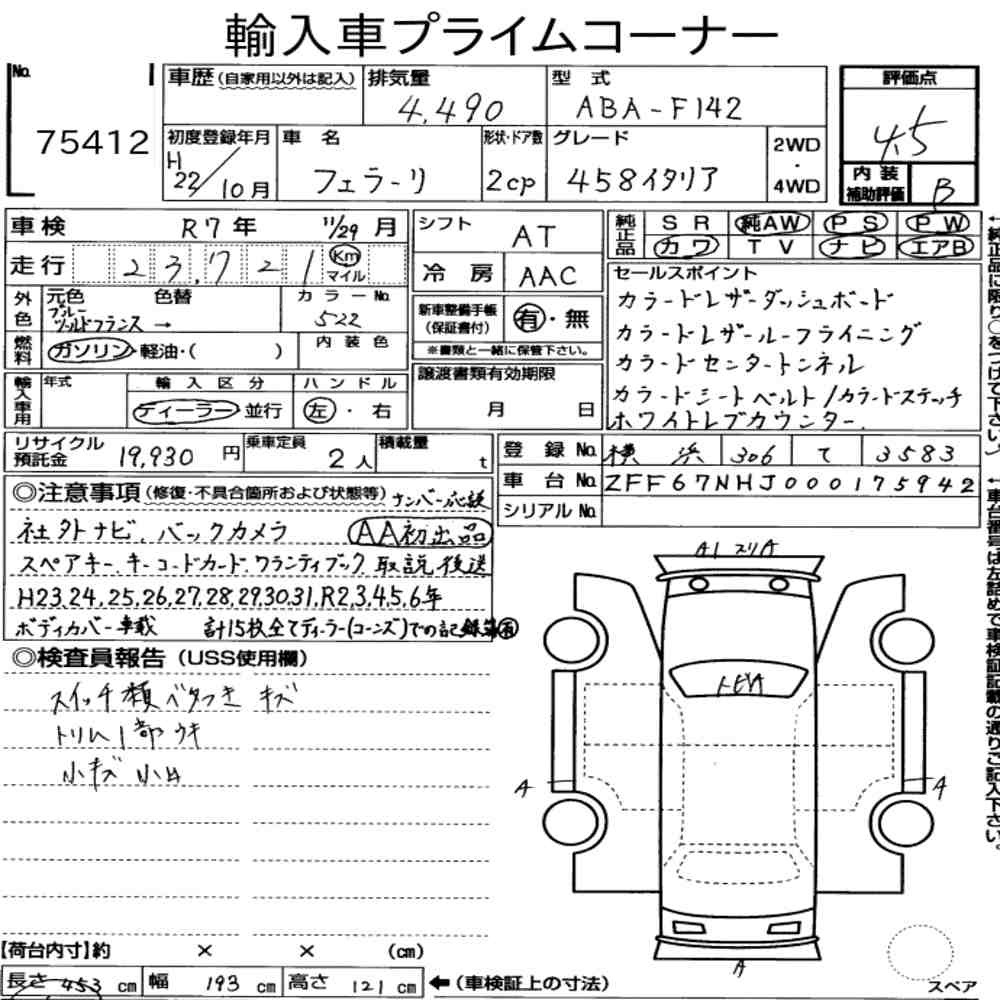 輸入車プライムコーナー
No. 75412
車歴 (自家用以外は記入)
排気量 4,490
型式 ABA-F142
評価点 4.5
初度登録年月 H22/10月
車名 フェラーリ
形状・ドア数 2cp
グレード 458イタリア
2WD・4WD
内装補助評価 B
車検 R7年 11/29月
シフト AT
純正品 SR 純AW PS PW
カワ TV ナビ エアB
走行 23,721 Km マイル
冷房 AAC
セールスポイント
カラードレザーダッシュボード
カラードレザールーフライニング
カラードセンタートンネル
カラードシートベルト/カラードステッチ
ホワイトレブカウンター
外色 元色 色替 カラーNo.
ブルーツールドフランス → 522
新車整備手帳(保証書付) 有・無
※書類と一緒に保管下さい。
燃料 ガソリン・軽油・( ) 内装色
輸入車用 年式 輸入区分 ハンドル
ディーラー 並行 左・右
譲渡書類有効期限
月 日
リサイクル預託金 19,930円
乗車定員 2人
積載量 t
登録No. 横浜 306 て 3583
車台No. ZFF67NHJ000175942
シリアルNo.
◎注意事項(修復・不具合箇所および状態等) ナンバー応送
社外ナビ、バックカメラ AA初出品
スペアキー、キーコードカード、ワランティブック、取説後送
H23,24,25,26,27,28,29,30,31,R2,3,4,5,6年
ボディカバー車載 計15枚全てディーラー(コーンズ)での記録簿有
◎検査員報告(USS使用欄)
スイッチ類ベタつき キズ
トリム1部ウキ
小キズ 小凹
A1 スリA
トビA
A
A
A
【荷台内寸】約 × × (cm)
長さ 453 cm 幅 193 cm 高さ 121 cm ←(車検証上の寸法)
スペア
←純正品に限り○をつけて下さい。)
←車台番号は左詰めで車検証記載の通りご記入下さい。